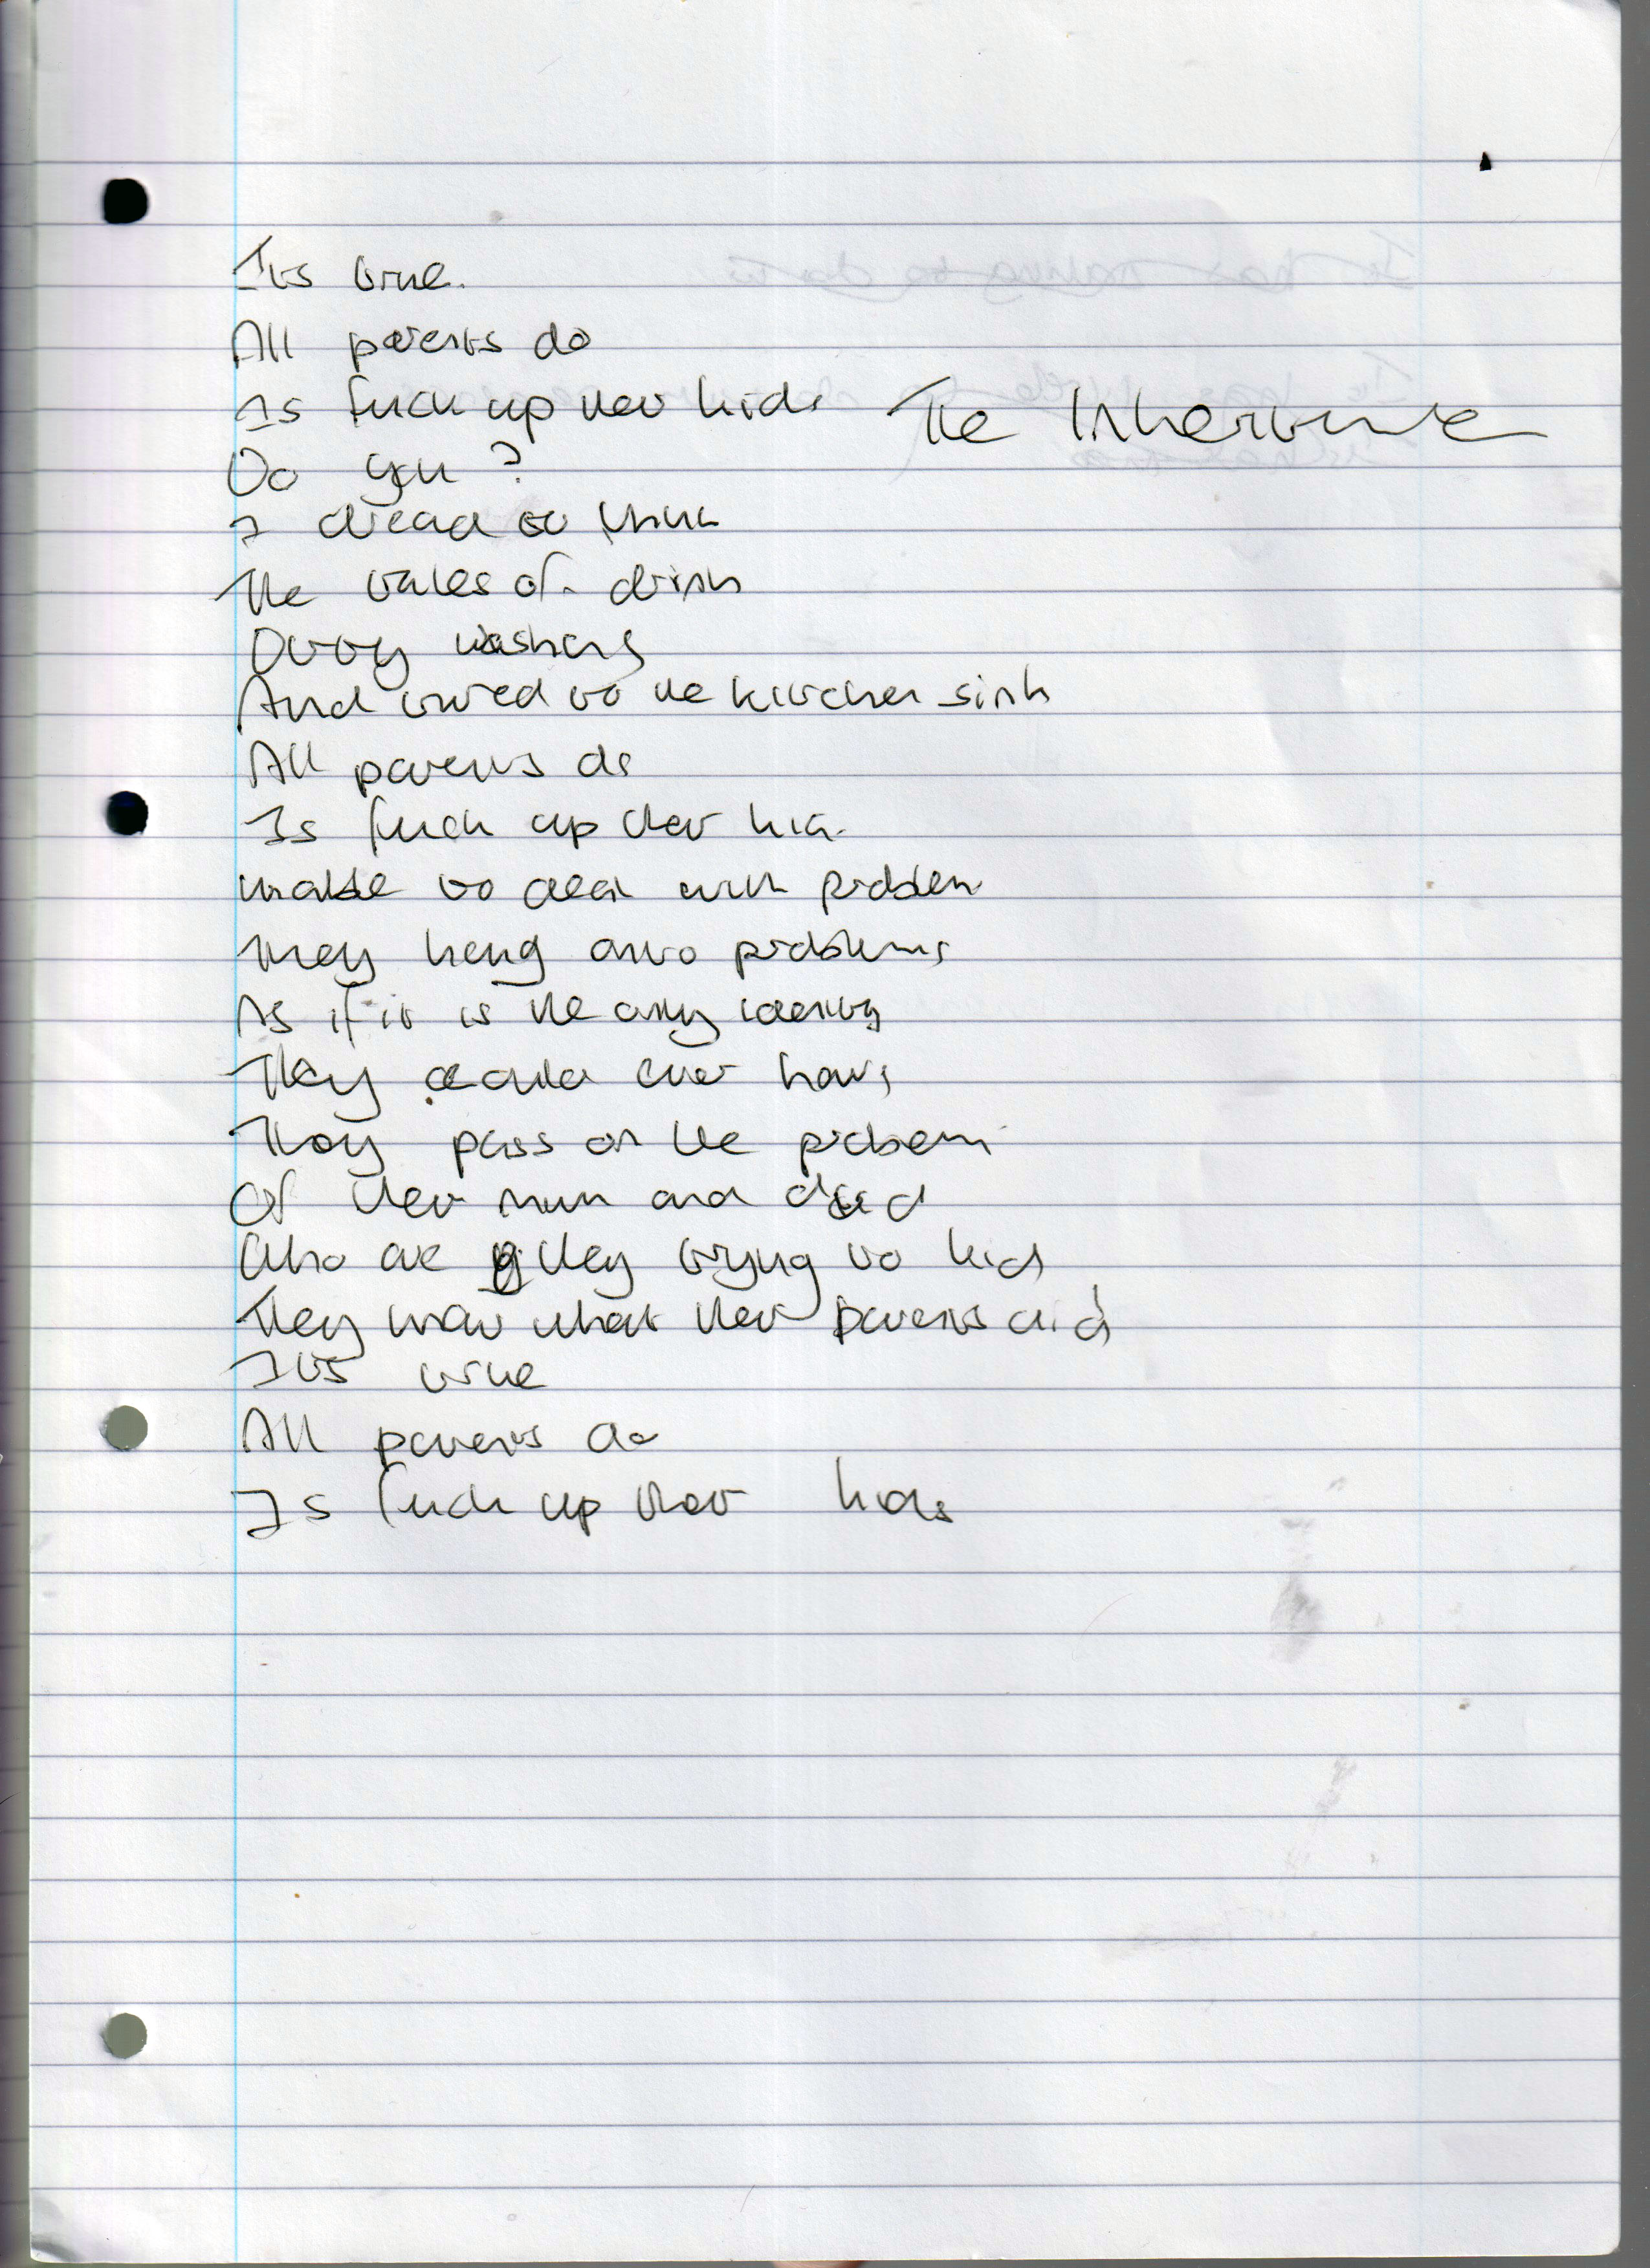 Its true.
All parents do
Is fuck up ther kids
The Inheritance
Do you?
I dread to think
The tales of drink
Dirty washing
And tied to the kitchen sink
All parents do
Is fuck up ther kids
unable to deal with problem
They hang onto problems
As if it is the only identity
They could ever have
They pass on the problem
Of ther mum and dad
Who are they trying to kid
They know what ther parents did
Its true
All parents do
Is fuck up ther kids